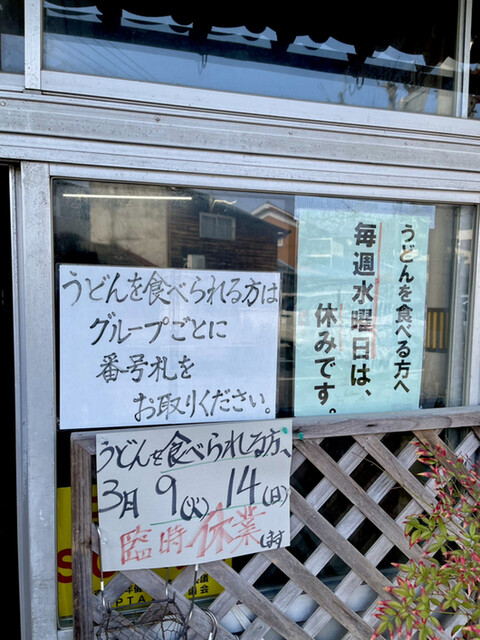 うどんを食べる方へ
毎週水曜日は、
休みです。
うどんを食べられる方は
グループごとに
番号札を
お取りください。
うどんを食べられる方、
3月9(火)14(日)
臨時休業します
PTA